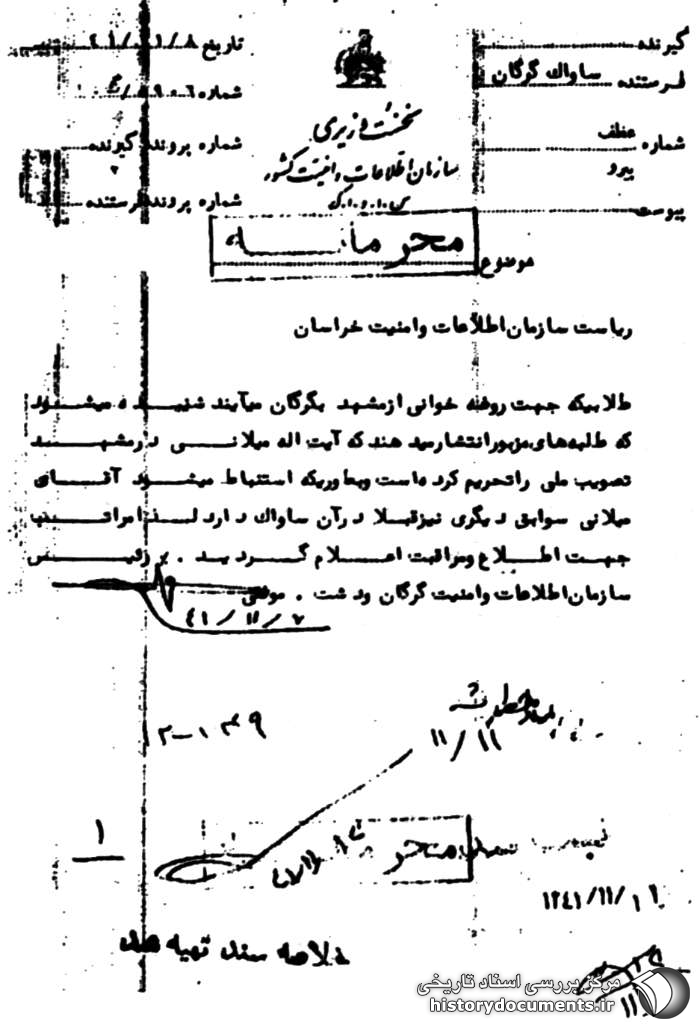 گیرنده
فرستنده ساواک گرگان
شماره عطف
پیرو
پیوست
موضوع
نخست وزیری
سازمان اطلاعات و امنیت کشور
س.ا.و.ا.ک
محرمانه
تاریخ
شماره
شماره پرونده گیرنده
شماره پرونده فرستنده
ریاست سازمان اطلاعات و امنیت خراسان
طلابیکه جهت روضه خوانی از مشهد بگرگان میآیند شنیده میشود
که طلبه‌های مزبور انتشار میدهند که آیت اله میلانی در مشهد
تصویب ملی را تحریم کرده است و بطوریکه استنباط میشود آقای
میلانی سوابق دیگری نیز قبلا در آن ساواک دارد لذا مراتب
جهت اطلاع و مراقبت اعلام گردید . رئیس
سازمان اطلاعات و امنیت گرگان و دشت . موثقی
۴۱/۱۱/۷
۱۱/۱۱
۱
محر
۱۳۴۱/۱۱/۱۲
خلاصه سند تهیه شد
مرکز بررسی اسناد تاریخی
historydocuments.ir